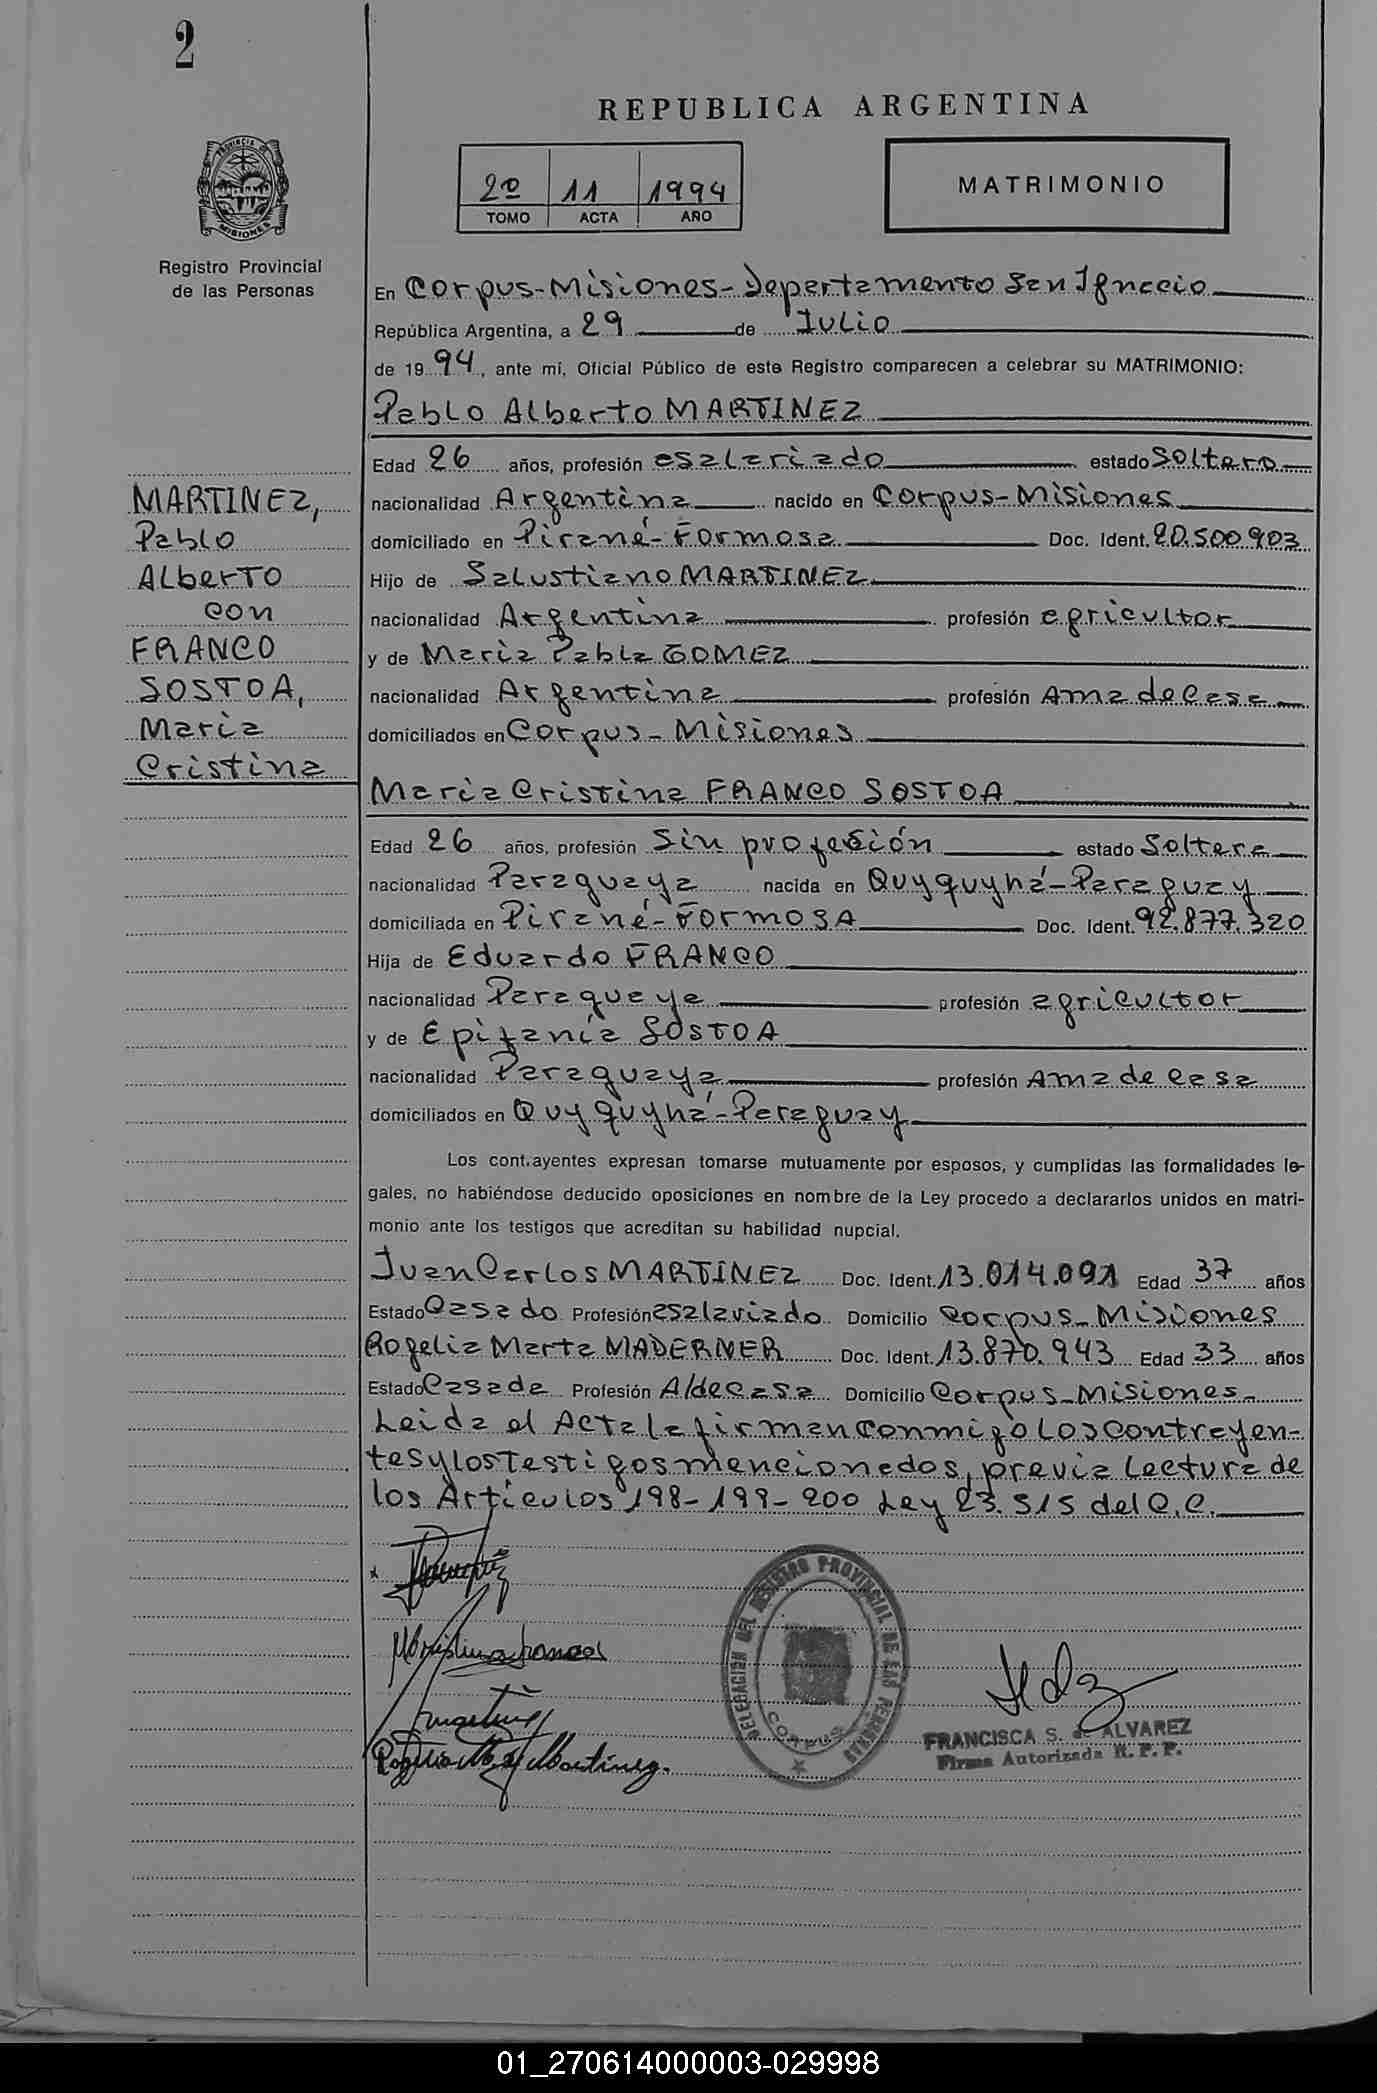 2
REPUBLICA ARGENTINA
2º 11 1994
TOMO ACTA AÑO
MATRIMONIO
PROVINCIA DE MISIONES
Registro Provincial
de las Personas
En Corpus-Misiones-Departamento San Ignacio
República Argentina, a 29 de Julio
de 19 94, ante mí, Oficial Público de este Registro comparecen a celebrar su MATRIMONIO:
Pablo Alberto MARTINEZ
Edad 26 años, profesión asalariado estado Soltero
nacionalidad Argentina nacido en Corpus-Misiones
domiciliado en Pirané-Formosa Doc. Ident. 20.500.903
Hijo de Salustiano MARTINEZ
nacionalidad Argentina profesión agricultor
y de Maria Pabla GOMEZ
nacionalidad Argentina profesión Ama de Casa
domiciliados en Corpus-Misiones
MARTINEZ,
Pablo
ALberTO
con
FRANCO
SOSTOA,
Maria
Cristina
Maria Cristina FRANCO SOSTOA
Edad 26 años, profesión Sin profesión estado Soltera
nacionalidad Paraguaya nacida en Quyquyhá-Paraguay
domiciliada en Pirané-Formosa Doc. Ident. 92.877.320
Hija de Eduardo FRANCO
nacionalidad Paraguaya profesión agricultor
y de Epifanía SOSTOA
nacionalidad Paraguaya profesión Ama de casa
domiciliados en Quyquyhá-Paraguay
Los cont.ayentes expresan tomarse mutuamente por esposos, y cumplidas las formalidades le-
gales, no habiéndose deducido oposiciones en nombre de la Ley procedo a declararlos unidos en matri-
monio ante los testigos que acreditan su habilidad nupcial.
Juan Carlos MARTINEZ Doc. Ident. 13.014.091 Edad 37 años
Estado Casado Profesión asalariado Domicilio Corpus-Misiones
Rogelia Marta MADERNER Doc. Ident. 13.870.943 Edad 33 años
Estado Casada Profesión A/de Casa Domicilio Corpus-Misiones-
Leida el Acta la firman conmigo los contrayen-
tes y los testigos mencionados, previa lectura de
los Artículos 198-199-200 Ley 23.515 del C.C.
DELEGACION DEL REGISTRO PROVINCIAL DE LAS PERSONAS
CORPUS
FRANCISCA S. de ALVAREZ
Firma Autorizada R. P. P.
01_270614000003-029998